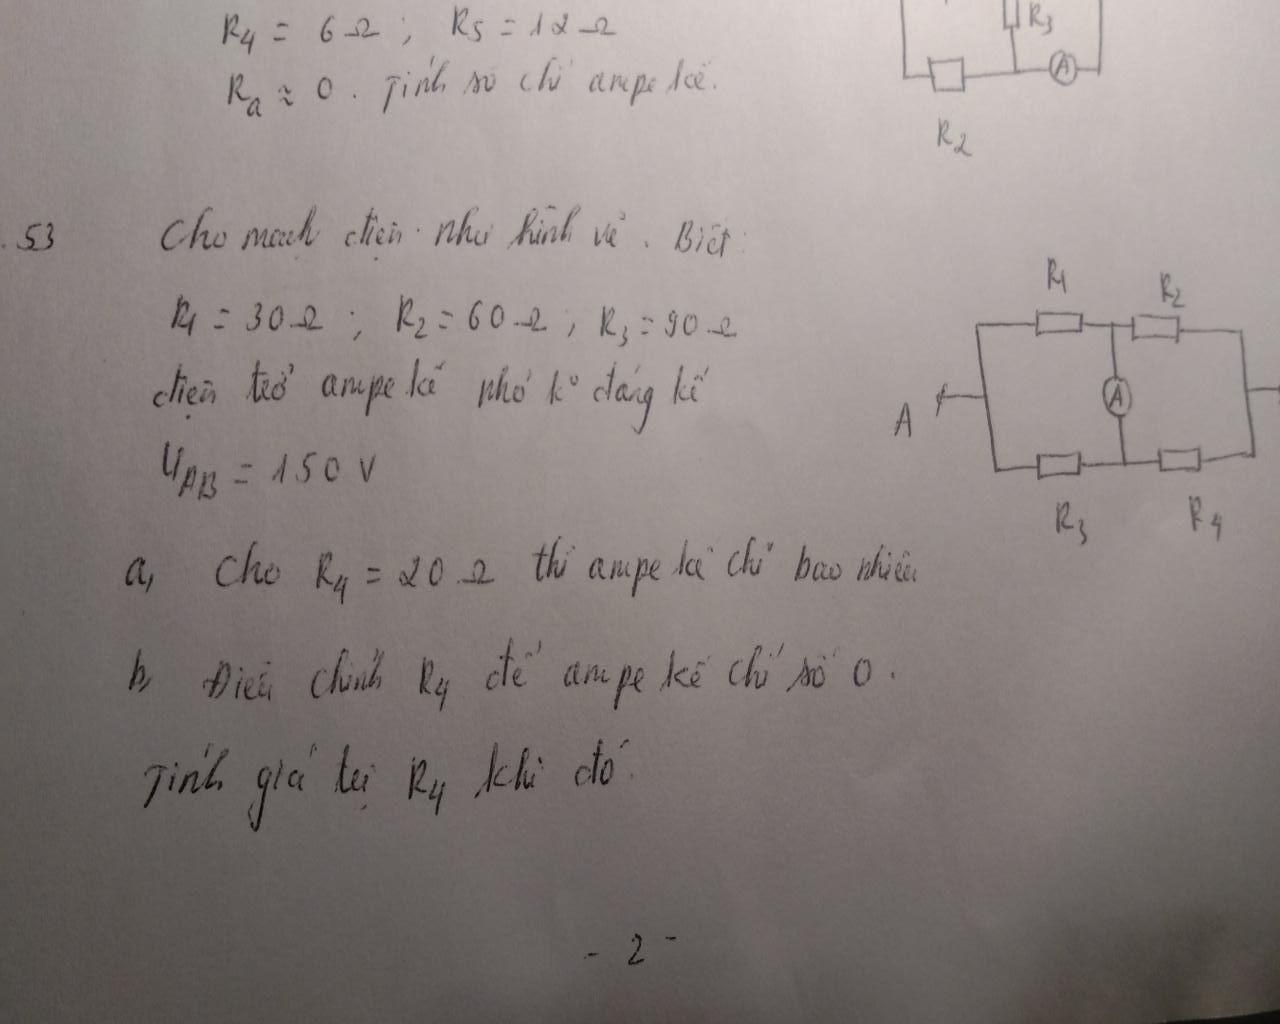 R4 = 6Ω ; R5 = 12Ω
Ra ≈ 0 . Tính số chỉ ampe kế.
R3
A
R2
.53 Cho mạch điện như hình vẽ . Biết :
R1 = 30Ω ; R2 = 60Ω ; R3 = 90Ω
điện trở ampe kế nhỏ k° đáng kể
UAB = 150 V
R1 R2
A
A
R3 R4
a, Cho R4 = 20 Ω thì ampe kế chỉ bao nhiêu
b, Điều chỉnh R4 để ampe kế chỉ số 0 .
Tính giá trị R4 khi đó.
- 2 -